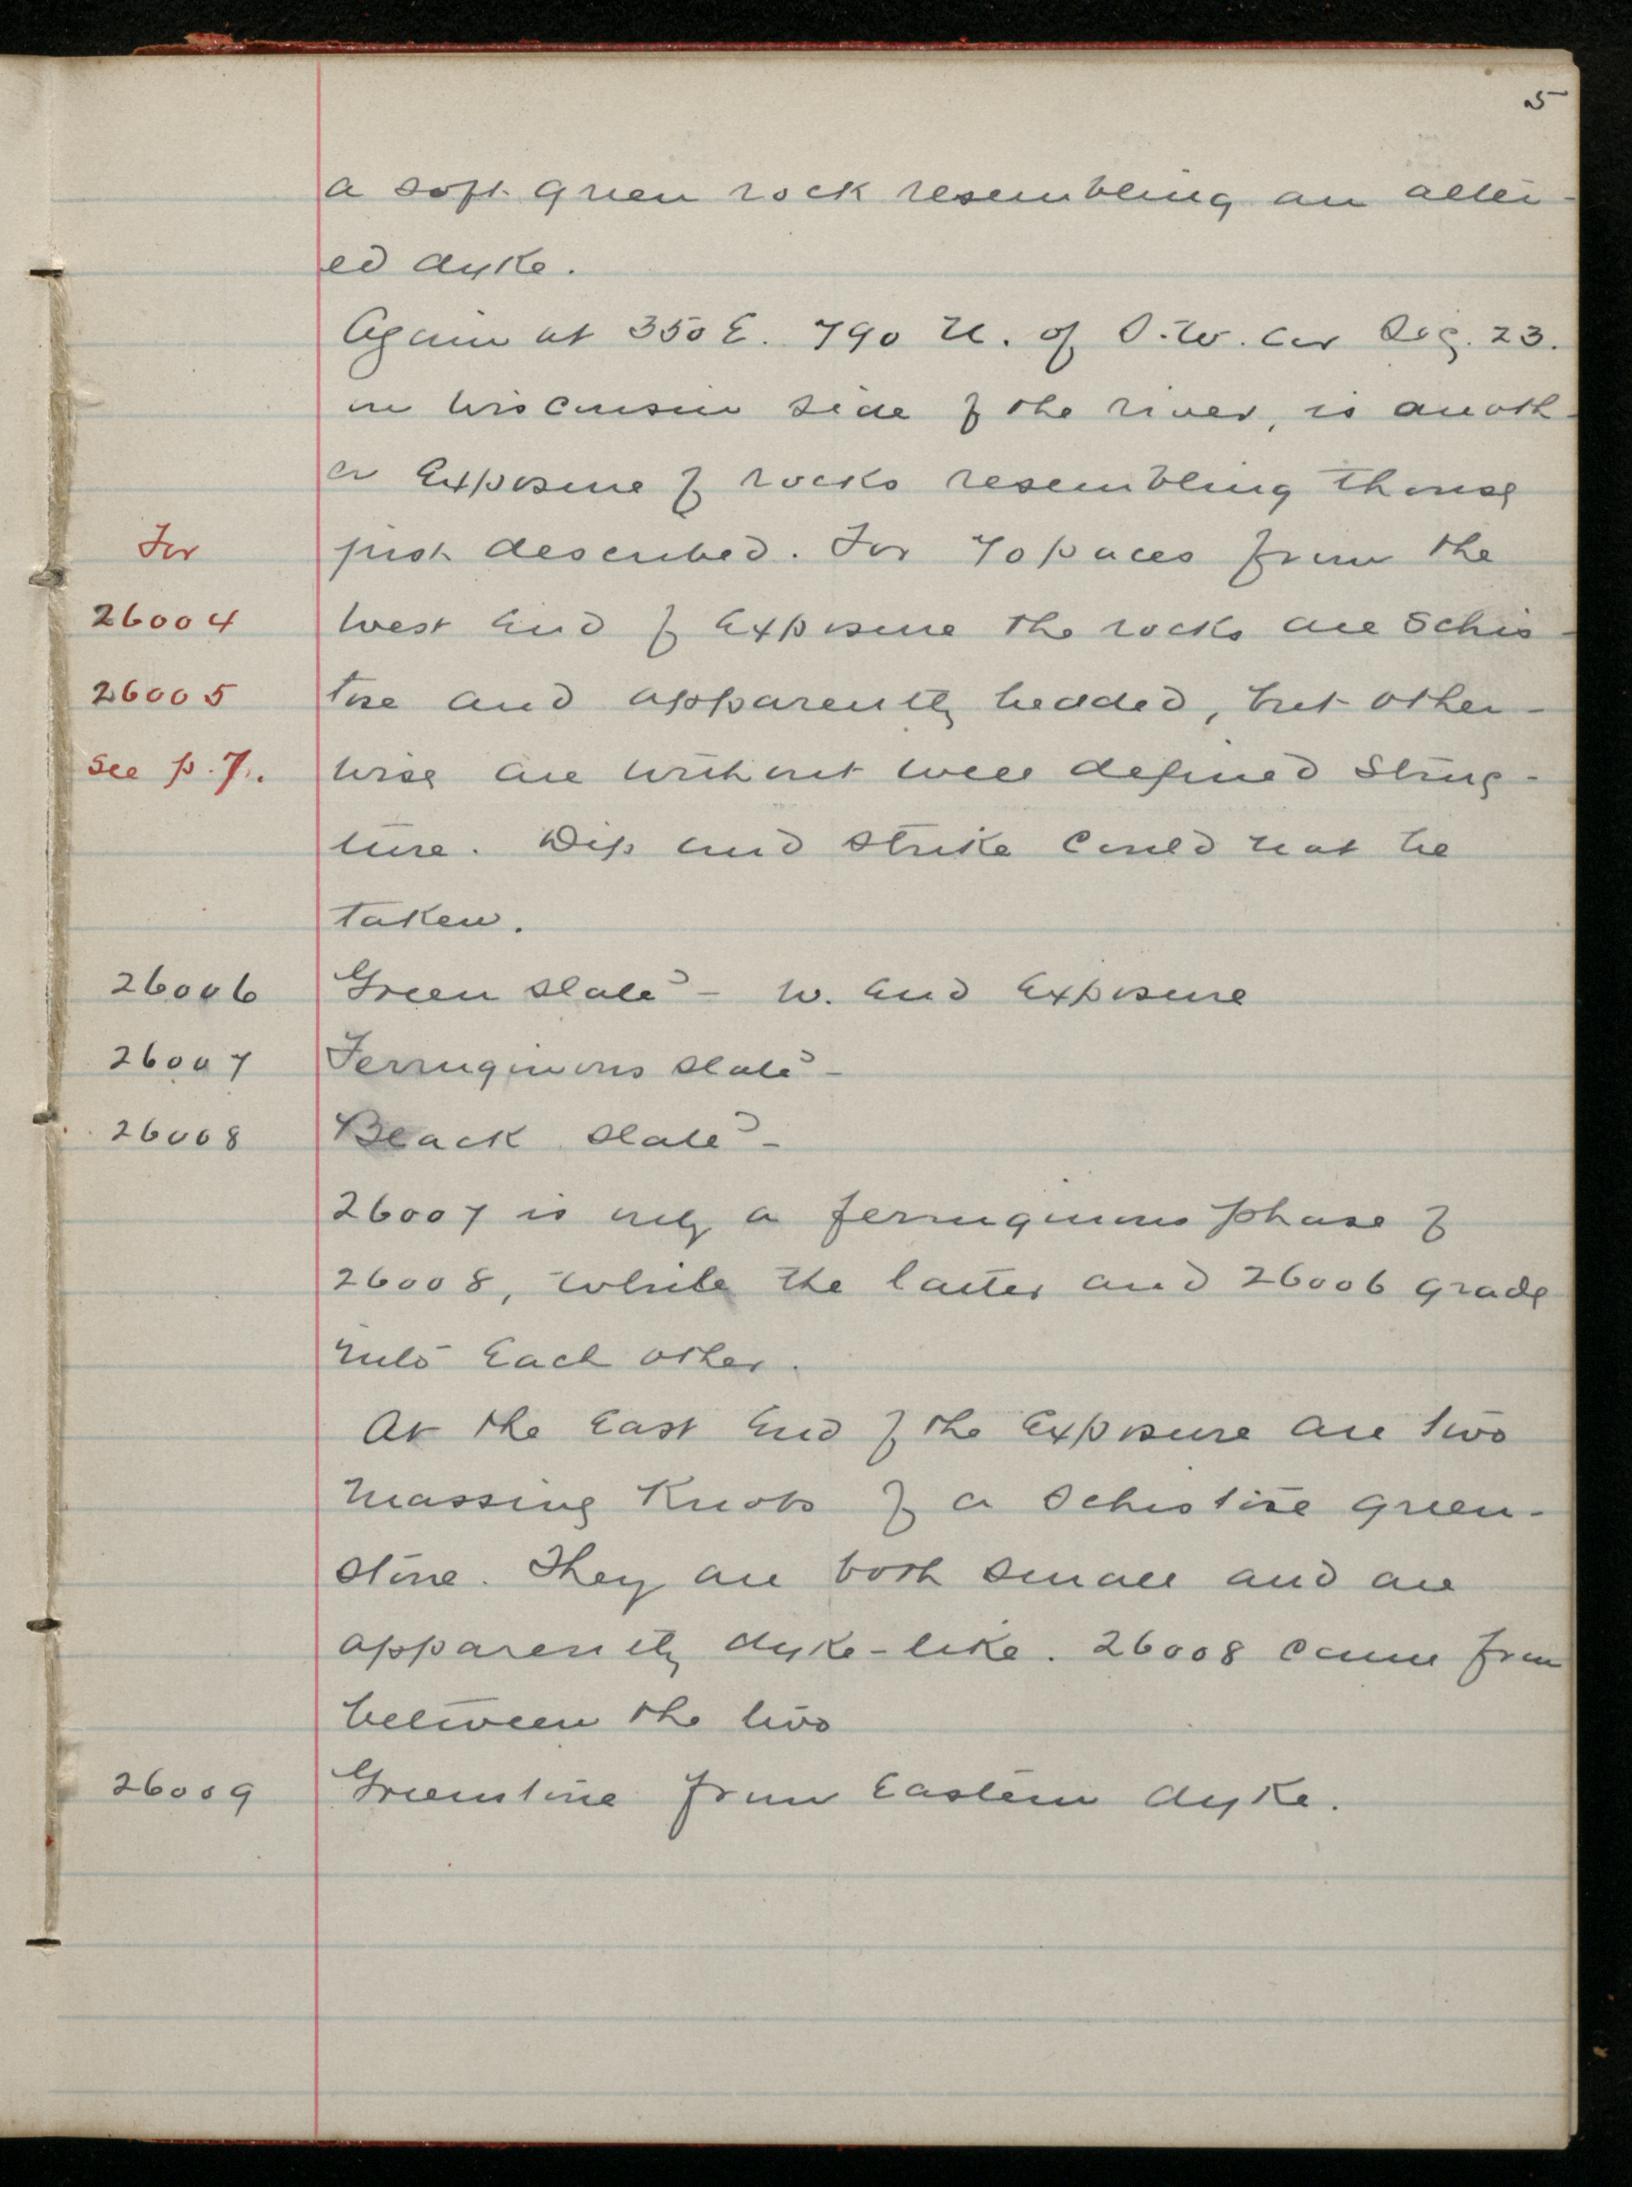 5
a soft green rock resembling an alter-
ed dyke.
Again at 350 E. 790 N. of S.W. cor Sec. 23.
on Wisconsin side of the river, is anoth-
er Exposure of rocks resembling those
For
just described. For 70 paces from the
26004
west End of Exposure the rocks are Schis-
26005
tose and apparently bedded, but other-
see p. 7.
wise are without well defined Struc-
ture. Dip and strike could not be
taken.
26006 Green slate - W. End Exposure
26007 Ferruginous slate -
26008 Black slate -
26007 is only a ferruginous phase of
26008, while the latter and 26006 grade
into Each other.
At the East End of the Exposure are two
massive Knobs of a schistose green-
stone. They are both small and are
apparently dyke-like. 26008 came from
between the two
26009 Greenstone from Eastern dyke.